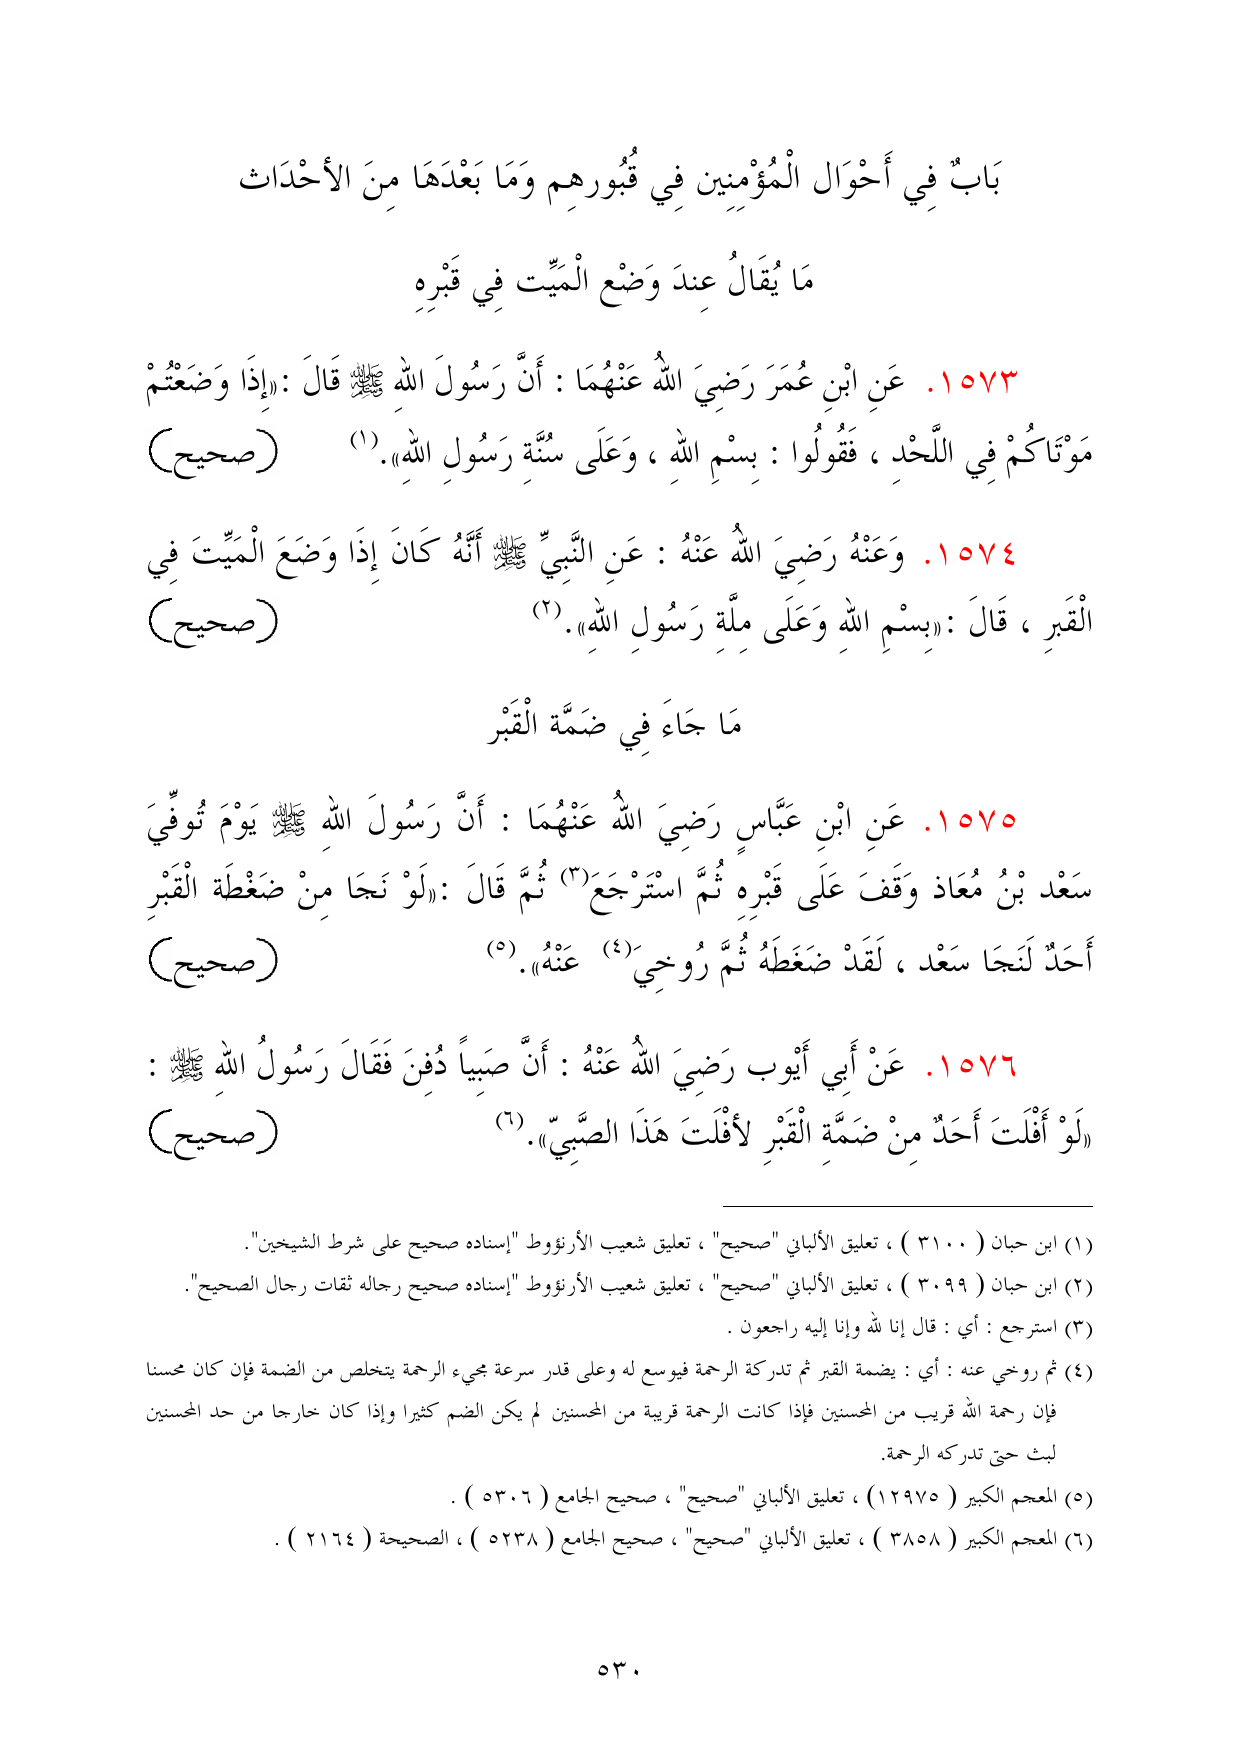 بَابٌ فِي أَحْوَال الْمُؤْمِنِين فِي قُبُورهِم وَمَا بَعْدَهَا مِنَ الأحْدَاث
مَا يُقَالُ عِندَ وَضْع الْمَيِّت فِي قَبْرِهِ
١٥٧٣. عَنِ ابْنِ عُمَرَ رَضِيَ اللهُ عَنْهُمَا : أَنَّ رَسُولَ اللهِ ﷺ قَالَ :«إِذَا وَضَعْتُمْ
مَوْتَاكُمْ فِي اللَّحْدِ ، فَقُولُوا : بِسْمِ اللهِ ، وَعَلَى سُنَّةِ رَسُولِ اللهِ».(١) (صحيح)
١٥٧٤. وَعَنْهُ رَضِيَ اللهُ عَنْهُ : عَنِ النَّبِيِّ ﷺ أَنَّهُ كَانَ إِذَا وَضَعَ الْمَيِّتَ فِي
الْقَبرِ ، قَالَ :«بِسْمِ اللهِ وَعَلَى مِلَّةِ رَسُولِ اللهِ».(٢) (صحيح)
مَا جَاءَ فِي ضَمَّة الْقَبْر
١٥٧٥. عَنِ ابْنِ عَبَّاسٍ رَضِيَ اللهُ عَنْهُمَا : أَنَّ رَسُولَ اللهِ ﷺ يَوْمَ تُوفِّيَ
سَعْد بْنُ مُعَاذ وَقَفَ عَلَى قَبْرِهِ ثُمَّ اسْتَرْجَعَ(٣) ثُمَّ قَالَ :«لَوْ نَجَا مِنْ ضَغْطَة الْقَبْرِ
أَحَدٌ لَنَجَا سَعْد ، لَقَدْ ضَغَطَهُ ثُمَّ رُوخِيَ(٤) عَنْهُ».(٥) (صحيح)
١٥٧٦. عَنْ أَبِي أَيْوب رَضِيَ اللهُ عَنْهُ : أَنَّ صَبِياً دُفِنَ فَقَالَ رَسُولُ اللهِ ﷺ :
«لَوْ أَفْلَتَ أَحَدٌ مِنْ ضَمَّةِ الْقَبْرِ لأفْلَتَ هَذَا الصَّبِيّ».(٦) (صحيح)
(١) ابن حبان ( ٣١٠٠ ) ، تعليق الألباني "صحيح" ، تعليق شعيب الأرنؤوط "إسناده صحيح على شرط الشيخين".
(٢) ابن حبان ( ٣٠٩٩ ) ، تعليق الألباني "صحيح" ، تعليق شعيب الأرنؤوط "إسناده صحيح رجاله ثقات رجال الصحيح".
(٣) استرجع : أي : قال إنا لله وإنا إليه راجعون .
(٤) ثم روخي عنه : أي : يضمة القبر ثم تدركة الرحمة فيوسع له وعلى قدر سرعة مجيء الرحمة يتخلص من الضمة فإن كان محسنا
فإن رحمة الله قريب من المحسنين فإذا كانت الرحمة قريبة من المحسنين لم يكن الضم كثيرا وإذا كان خارجا من حد المحسنين
لبث حتى تدركه الرحمة.
(٥) المعجم الكبير ( ١٢٩٧٥) ، تعليق الألباني "صحيح" ، صحيح الجامع ( ٥٣٠٦ ) .
(٦) المعجم الكبير ( ٣٨٥٨ ) ، تعليق الألباني "صحيح" ، صحيح الجامع ( ٥٢٣٨ ) ، الصحيحة ( ٢١٦٤ ) .
٥٣٠